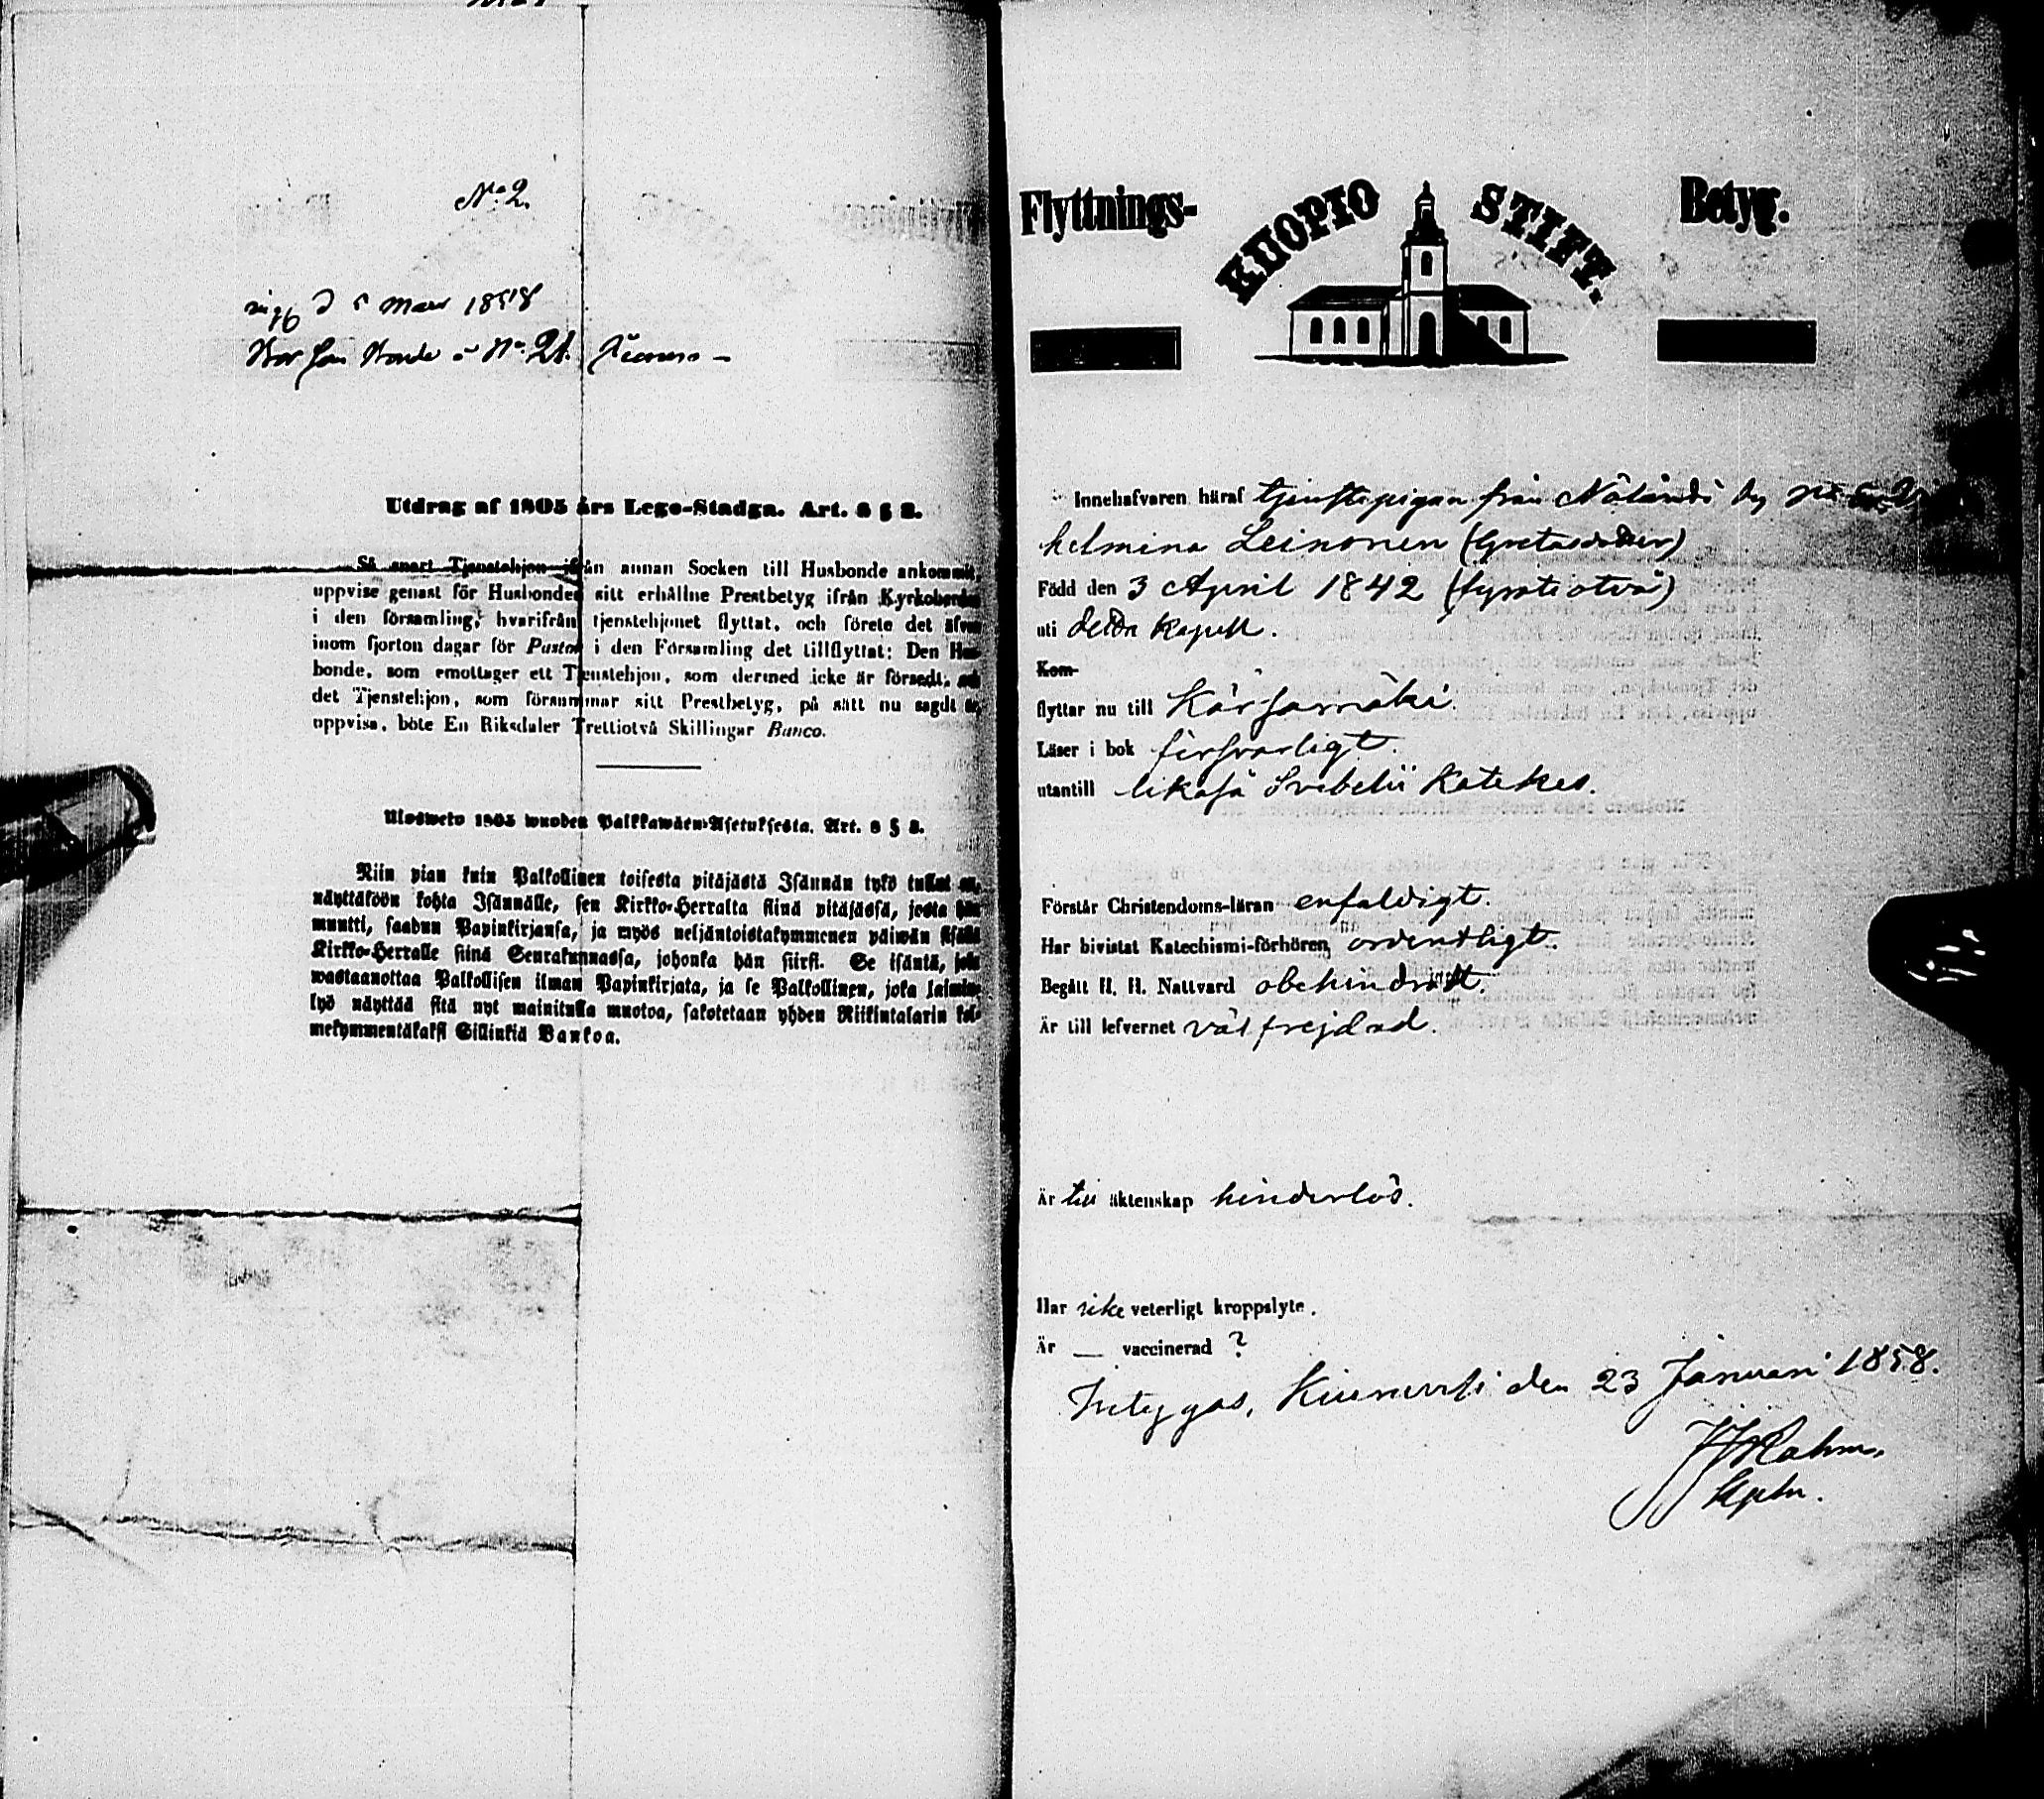 No 2.
d 5 Mars 1858
No 21.
Utdrag af 1805 års Lego-Stadga. Art. 8 § 2.
Så snart Tjenstehjon ifrån annan Socken till Husbonde ankommit,
uppvise genast för Husbonden sitt erhållne Prestbetyg ifrån Kyrkoherden
i den församling, hvarifrån tjenstehjonet flyttat, och förete det äfven
inom fjorton dagar för Pastor i den Församling det tillflyttat: Den Hus-
bonde, som emottager ett Tjenstehjon, som dermed icke är försedt, och
det Tjenstehjon, som försummar sitt Prestbetyg, på sätt nu sagdt är,
uppvisa, böte En Riksdaler Trettiotvå Skillingar Banco.
Ulosweto 1805 wuoden Palkkawäen-Asetuksesta. Art. 8 § 2.
Niin pian kuin Palkollinen toisesta pitäjästä Isännän tykö tullut on,
näyttäköön kohta Isännälle, sen Kirkko-Herralta siinä pitäjässä, josta hän
muutti, saadun Papinkirjansa, ja myös neljäntoistakymmenen päiwän sisällä
Kirkko-Herralle siinä Seurakunnassa, johonka hän siirsi. Se isäntä, joka
wastaanottaa Palkollisen ilman Papinkirjata, ja se Palkollinen, joka laimin-
lyö näyttää sitä nyt mainitulla muotoa, sakotetaan yhden Riikintalarin kol-
mekymmentäkaksi Sillinkiä Bankoa.
Flyttnings- KUOPIO STIFT. Betyg.
Innehafvaren häraf tjenstepigan från Nolånds by No
helmina Leinonen (Gretasdotter)
Född den 3 April 1842 (fyratiotvå)
uti detta kapell.
Kom-
flyttar nu till Kärsämäki.
Läser i bok försvarligt.
utantill likaså Svebelii Katekes.
Förstår Christendoms-läran enfaldigt.
Har bivistat Katechismi-förhören ordentligt.
Begått H. H. Nattvard obehindradt.
Är till lefvernet väl frejdad.
Är till äktenskap hinderlös.
Har icke veterligt kroppslyte.
Är — vaccinerad ?
Intygas, Kiuruvesi den 23 Januari 1858.